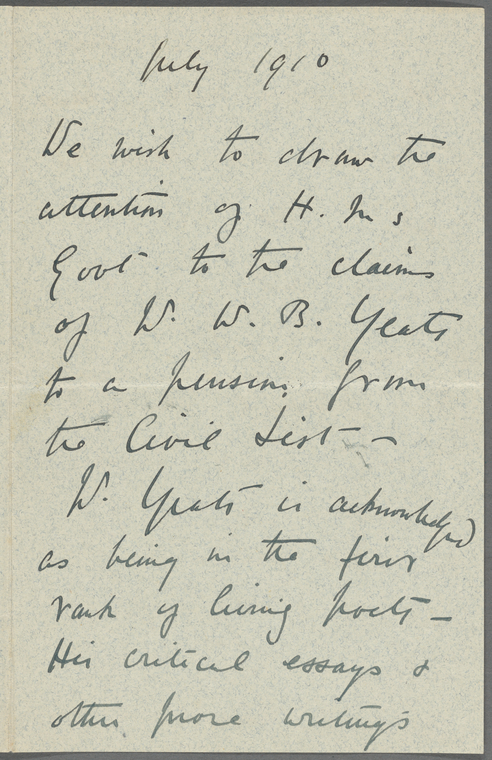 July 1910
We wish to draw the
attention of H. M s
Govt to the claims
of W. W. B. Yeats
to a pension from
the Civil List –
W. Yeats is acknowledged
as being in the first
rank of living poets –
His critical essays &
other prose writings